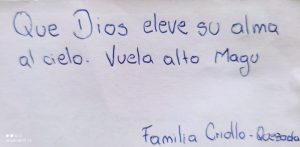 Que Dios eleve su alma
al cielo. Vuela alto Magu
Familia Criollo-Quezada